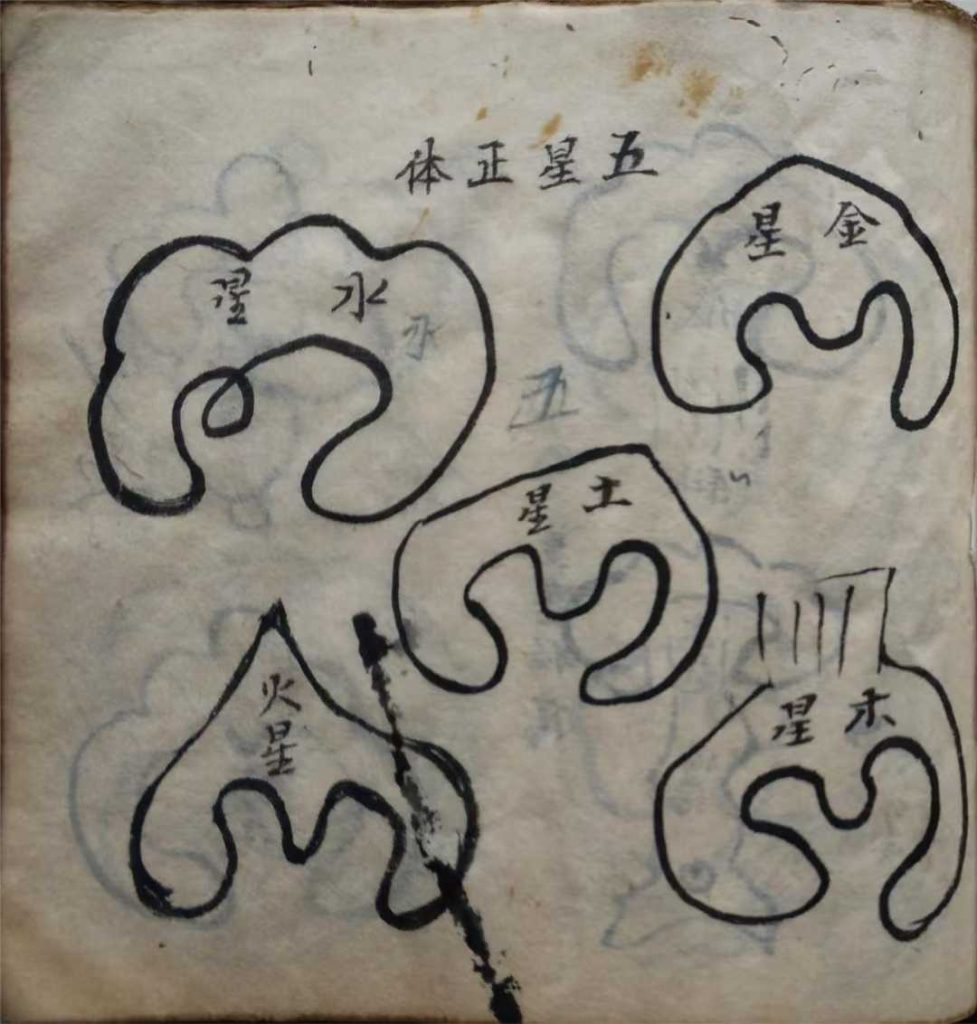 五星正体
金星
水星
水
五
土星
木星
火星